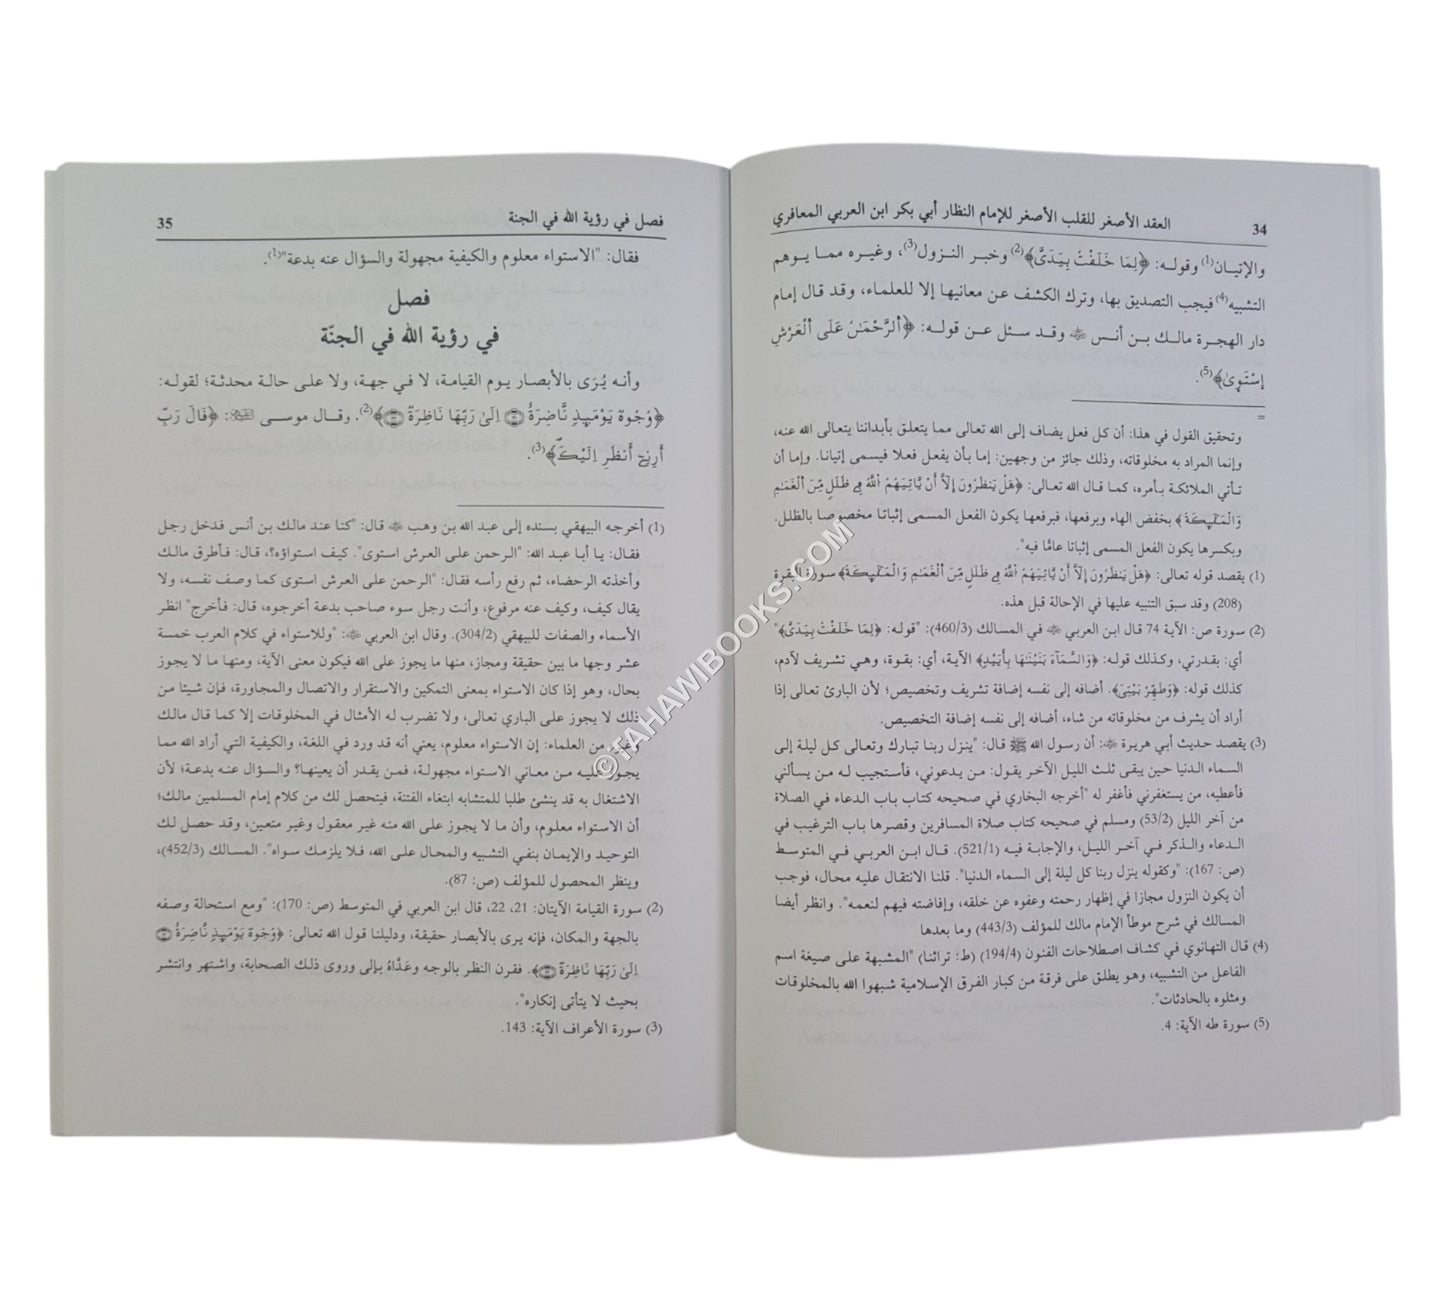 34 العقد الأصغر للقلب الأصغر للإمام النظار أبي بكر ابن العربي المعافري
والإتيان(1) وقوله: ﴿لِمَا خَلَقْتُ بِيَدَيَّ﴾(2) وخبر النزول(3)، وغيره مما يوهم
التشبيه(4) فيجب التصديق بها، وترك الكشف عن معانيها إلا للعلماء، وقد قال إمام
دار الهجرة مالك بن أنس ﷺ وقد سئل عن قوله: ﴿اَلرَّحْمَـٰنُ عَلَى اَلْعَرْشِ
اِسْتَوٜىٰ﴾(5).
=
وتحقيق القول في هذا: أن كل فعل يضاف إلى الله تعالى مما يتعلق بأبداننا يتعالى الله عنه،
وإنما المراد به مخلوقاته، وذلك جائز من وجهين: إما بأن يفعل فعلا فيسمى إتيانا. وإما أن
تأتي الملائكة بأمره، كما قال الله تعالى: ﴿هَلْ يَنظُرُونَ إِلَّآ أَنْ يَّاتِيَهُمُ اَللَّهُ فِے ظُلَلٍ مِّنَ اَلْغَمَـٰمِ
وَالْمَلَـٰٓئِكَةُ﴾ بخفض الهاء وبرفعها، فبرفعها يكون الفعل المسمى إثباتا مخصوصا بالظلل.
وبكسرها يكون الفعل المسمى إثباتا عامًّا فيه".
(1) يقصد قوله تعالى: ﴿هَلْ يَنظُرُونَ إِلَّآ أَنْ يَّاتِيَهُمُ اَللَّهُ فِے ظُلَلٍ مِّنَ اَلْغَمَـٰمِ وَالْمَلَـٰٓئِكَةُ﴾ سورة البقرة
(208) وقد سبق التنبيه عليها في الإحالة قبل هذه.
(2) سورة ص: الآية 74 قال ابن العربي في المسالك (460/3): "قوله: ﴿لِمَا خَلَقْتُ بِيَدَيَّ﴾"
أي: بقدرتي، وكذلك قوله: ﴿وَالسَّمَآءَ بَنَيْنَـٰهَا بِأَيْيْدٍ﴾ الآية، أي: بقوة، وهي تشريف لآدم،
كذلك قوله: ﴿وَطَهِّرْ بَيْتِيَ﴾. أضافه إلى نفسه إضافة تشريف وتخصيص؛ لأن البارئ تعالى إذا
أراد أن يشرف من مخلوقاته من شاء، أضافه إلى نفسه إضافة التخصيص.
(3) يقصد حديث أبي هريرة: أن رسول الله ﷺ قال: "ينزل ربنا تبارك وتعالى كل ليلة إلى
السماء الدنيا حين يبقى ثلث الليل الآخر يقول: من يدعوني، فأستجيب له من يسألني
فأعطيه، من يستغفرني فأغفر له "أخرجه البخاري في صحيحه كتاب باب الدعاء في الصلاة
من آخر الليل (53/2) ومسلم في صحيحه كتاب صلاة المسافرين وقصرها باب الترغيب في
الدعاء والذكر في آخر الليل، والإجابة فيه (521/1). قال ابن العربي في المتوسط
(ص: 167): "وكقوله ينزل ربنا كل ليلة إلى السماء الدنيا". قلنا الانتقال عليه محال، فوجب
أن يكون النزول مجازا في إظهار رحمته وعفوه عن خلقه، وإفاضته فيهم لنعمه". وانظر أيضا
المسالك في شرح موطأ الإمام مالك للمؤلف (443/3) وما بعدها
(4) قال التهانوي في كشاف اصطلاحات الفنون (194/4) (ط: تراثنا) "المشبهة على صيغة اسم
الفاعل من التشبيه، وهو يطلق على فرقة من كبار الفرق الإسلامية شبهوا الله بالمخلوقات
ومثلوه بالحادثات".
(5) سورة طه الآية: 4.
فصل في رؤية الله في الجنة 35
فقال: "الاستواء معلوم والكيفية مجهولة والسؤال عنه بدعة"(1).
فصل
في رؤية الله في الجنّة
وأنه يُرَى بالأبصار يوم القيامة، لا في جهة، ولا على حالة محدثة؛ لقوله:
﴿وُجُوهٌ يَوْمَئِذٍ نَّاضِرَةٌ اِلَىٰ رَبِّهَا نَاظِرَةٌ﴾(2). وقال موسى: ﴿قَالَ رَبِّ
أَرِنِےٓ أَنظُرِ اِلَيْكَۖ﴾(3).
(1) أخرجه البيهقي بسنده إلى عبد الله بن وهب قال: "كنا عند مالك بن أنس فدخل رجل
فقال: يا أبا عبد الله: "الرحمن على العرش استوى". كيف استواؤه؟، قال: فأطرق مالك
وأخذته الرحضاء، ثم رفع رأسه فقال: "الرحمن على العرش استوى كما وصف نفسه، ولا
يقال كيف، وكيف عنه مرفوع، وأنت رجل سوء صاحب بدعة أخرجوه، قال: فأخرج" انظر
الأسماء والصفات للبيهقي (304/2). وقال ابن العربي: "وللاستواء في كلام العرب خمسة
عشر وجها ما بين حقيقة ومجاز، منها ما يجوز على الله فيكون معنى الآية، ومنها ما لا يجوز
بحال، وهو إذا كان الاستواء بمعنى التمكين والاستقرار والاتصال والمجاورة، فإن شيئا من
ذلك لا يجوز على الباري تعالى، ولا تضرب له الأمثال في المخلوقات إلا كما قال مالك
وغيره من العلماء: إن الاستواء معلوم، يعني أنه قد ورد في اللغة، والكيفية التي أراد الله مما
يجوز عليه من معاني الاستواء مجهولة، فمن يقدر أن يعينها؟ والسؤال عنه بدعة؛ لأن
الاشتغال به قد ينشئ طلبا للمتشابه ابتغاء الفتنة، فيتحصل لك من كلام إمام المسلمين مالك؛
أن الاستواء معلوم، وأن ما لا يجوز على الله منه غير معقول وغير متعين، وقد حصل لك
التوحيد والإيمان بنفي التشبيه والمحال على الله، فلا يلزمك سواه". المسالك (452/3)،
وينظر المحصول للمؤلف (ص: 87).
(2) سورة القيامة الآيتان: 21، 22، قال ابن العربي في المتوسط (ص: 170): "ومع استحالة وصفه
بالجهة والمكان، فإنه يرى بالأبصار حقيقة، ودليلنا قول الله تعالى: ﴿وُجُوهٌ يَوْمَئِذٍ نَّاضِرَةٌ
اِلَىٰ رَبِّهَا نَاظِرَةٌ﴾. فقرن النظر بالوجه وعَدَّاهُ بإلى وروي ذلك الصحابة، واشتهر وانتشر
بحيث لا يتأتى إنكاره".
(3) سورة الأعراف الآية: 143.
©TAHAWIBOOKS.COM